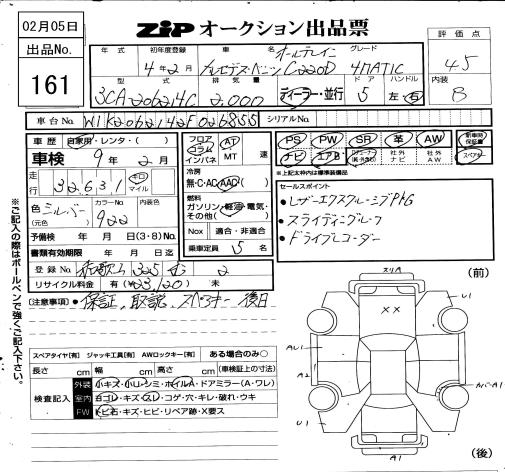 02月05日
出品No.
161
ZiP オークション出品票
評価点
4.5
内装
B
年式 初年度登録 車名 グレード
4年2月 メルセデス・ベンツ オールテレイン C220D 4MATIC
型式 排気量 ドア ハンドル
3CA-206214C 2,000 ディーラー・並行 5 左・右
車台No. W1K2062142F026855 シリアルNo.
車歴 自家用・レンタ・( )
車検 9年2月
走行 32,631 キロ マイル
色(元色) シルバー カラーNo. 922 内装色
予備検 年 月 日(3・8)No.
書類有効期限 年 月 日迄
登録No. 和歌山 325 む 2
リサイクル料金 有(¥23,120) 未
フロア コラム インパネ AT MT 速
冷房 無・C・AC・AAC
燃料 ガソリン・軽油・電気・その他( )
Nox 適合・非適合
乗車定員 5名
PS PW SR 革 AW 新車時保証書
ナビ エアB 社外ナビ 社外AW スペアキー
※上記太枠内は標準装備品
セールスポイント
・レザーエクスクルーシブPKG
・スライディングルーフ
・ドライブレコーダー
(注意事項) 保証、取説、スペアキー 後日
スペアタイヤ[有] ジャッキ工具[有] AWロックキー[有] ある場合のみ○
長さ cm 幅 cm 高さ cm (車検証上の寸法)
検査記入
外装 小キズ・小凹・シミ・ホイルA・ドアミラー(A・ワレ)
室内 ヨゴレ・キズ・スレ・コゲ・穴・キレ・破れ・ウキ
FW トビ石・キズ・ヒビ・リペア跡・X要ス
※ご記入の際はボールペンで強くご記入下さい。
スリA
(前)
U1
XX
AU1
A2
U1
A1
(後)